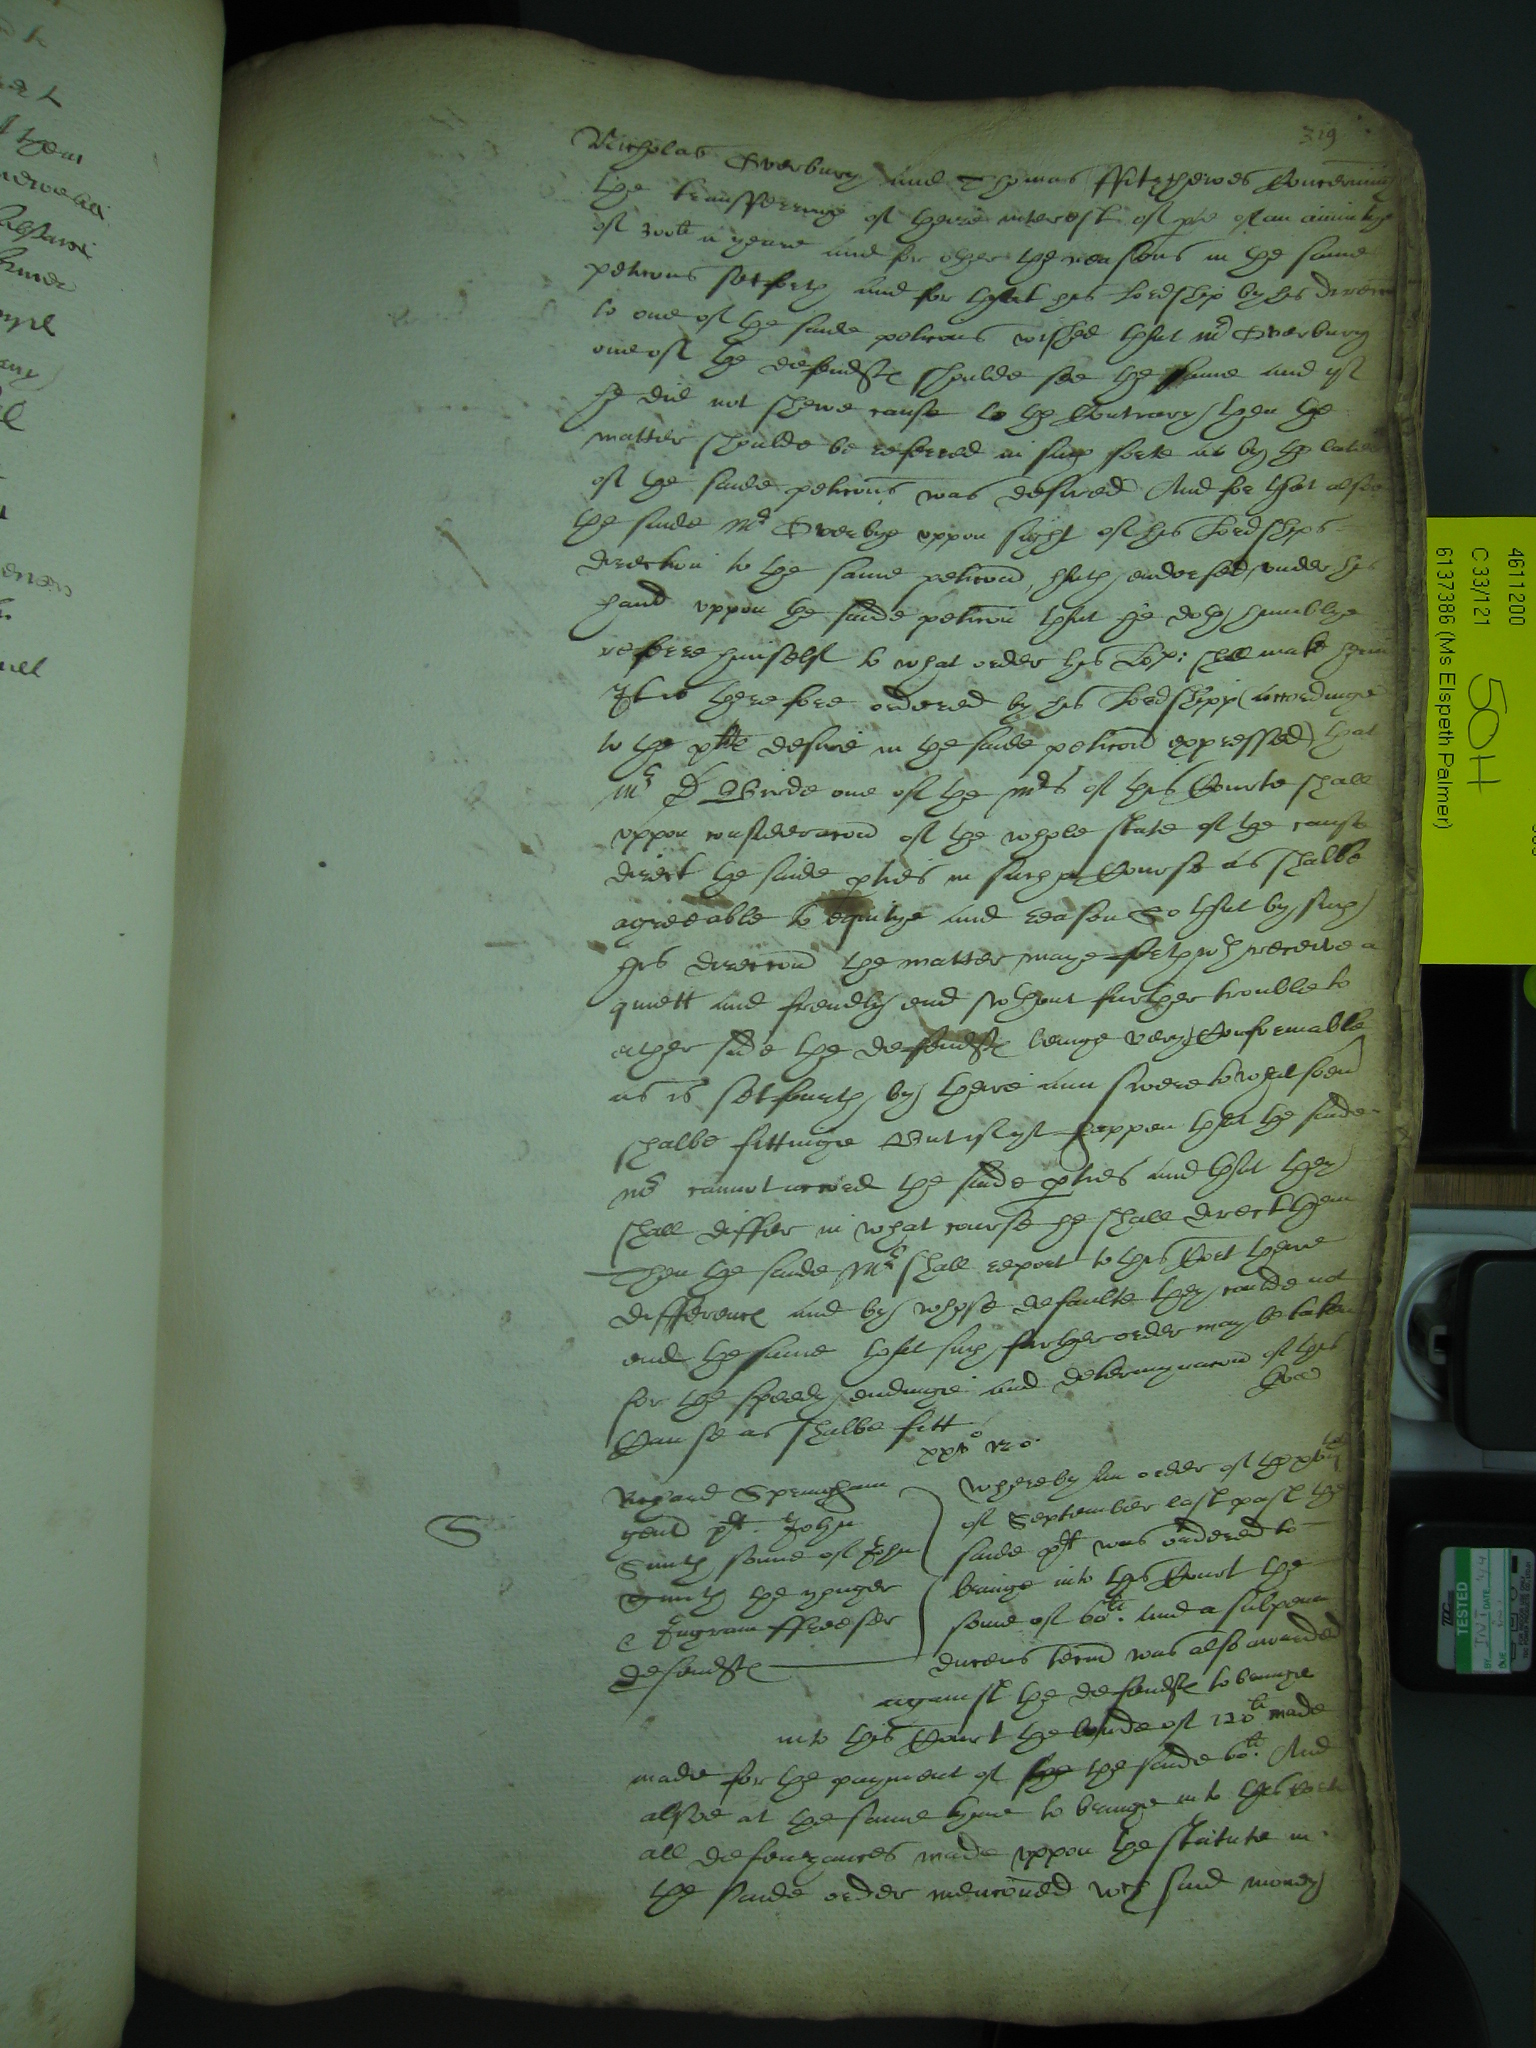 319
Nicholas Overbury and Thomas ffitzhewes Concerninge
the transferringe of theire interest of pte of an annuitye
of 300li a yeare and for other the reasons in the same
peticons setforth and for that his Lordship by his direccon
to one of the saide peticons wished that Mr Overbury
one of the defendtes shoulde see the same and yf
he did not shewe cause to the Contrary then the
matter shoulde be referred in such sorte as by the later
of the saide peticons was desired And for that alsoe
the saide Mr Overbye uppon sight of his Lordships
direction to the same peticon hath endorsed under his
hand uppon the saide peticon that he doth humblye
referre himself to what order his Lop: shall make herin
It is therefore ordered by his Lordshipp (accordinge
to the plte desire in the saide peticon expressed) that
Mr D Awirde one of the Mrs of this Courte shall
uppon consideracon of the whole state of the cause
direct the saide pties in such a Course as shalbe
agreeable to equitye and reason So that by such
his direccon the matter maye forthwth receive a
quiett and frendly end wthout further trouble to
ather side the defendtes beinge very Conformable
as is setfourth by theire aunswere to what soeu
shalbe fittinge But if yt happen that the saide
Mr cannot accord the saide pties and that they
shall differ in what course he shall direct them
Then the saide Mr shall report to this Cort theire
difference and by whose defaulte they coulde not
end the same that such further order may be taken
for the speedy endinge and determynacon of this
Cause as shalbe fitt
Richard Springham
gent plt. John
Smith sonne of John
Smith the yonger
& Ingram ffreeser
defendtes
S
whereby an order of the
of September last past the
saide plt was ordered to
bringe into this Court the
some of 60li. And a subpena
ducens tecum was also awarded
against the defendtes to bringe
into this Court the bonde of 120li made
made for the payment of the the saide 60li. And
alsoe at the same tyme to bringe into this Corte
all defeazances made uppon the statute in
the saide order mencioned wch said money
4611200
C33/121
50H
6137386 (Ms Elspeth Palmer)
TESTED